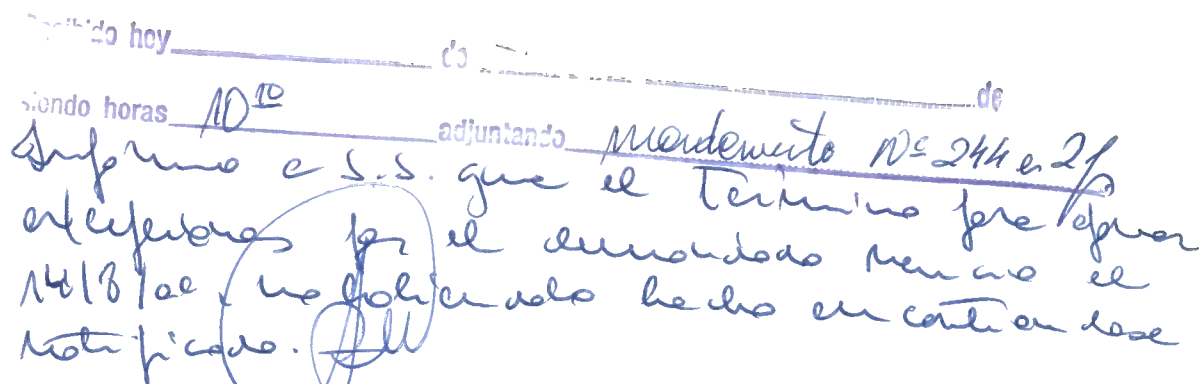 Recibido hoy de de
siendo horas 10 10 adjuntando mandamiento Nº 244 en 2f
Informo a S.S. que el Termino para oponer
excepciones por el demandado venció el
14/8/ no habiendolo hecho encontrandose
notificado.